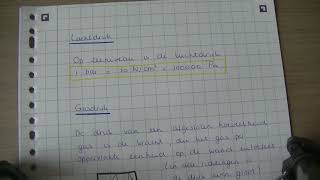 Luchtdruk
Op zeeniveau is de luchtdruk
1 bar = 10 N/cm² = 100000 Pa
Gasdruk
De druk van een afgesloten hoeveelheid
gas is de kracht, die het gas per
oppervlakte eenheid op de wand uitoefent